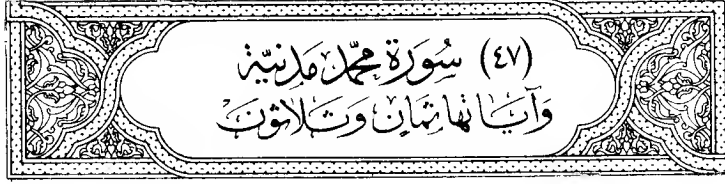 (٤٧) سُورَة محمّد مَدنيّة
وَآيَاتها ثمَان وَثلاثونَ